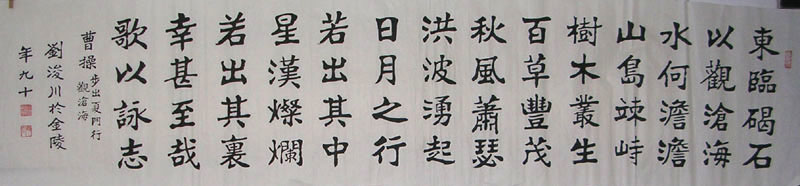 東臨碣石
以觀滄海
水何澹澹
山島竦峙
樹木叢生
百草豐茂
秋風蕭瑟
洪波湧起
日月之行
若出其中
星漢燦爛
若出其裏
幸甚至哉
歌以詠志
曹操
步出夏門行
觀滄海
劉浚川於金陵
年九十